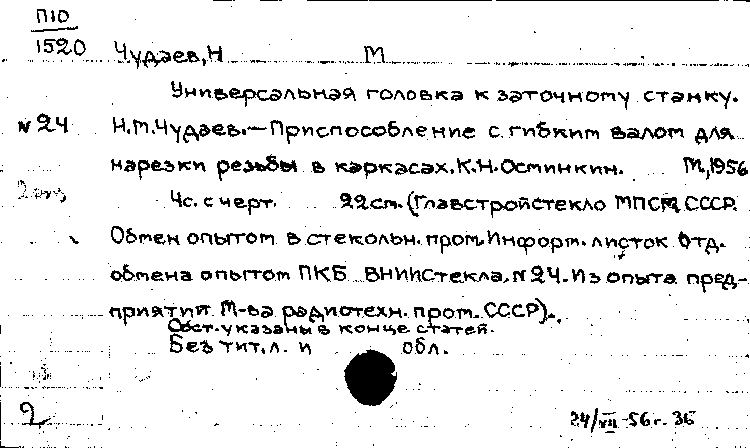 П10
1520
Чудаев, Н М
Универсальная головка к заточному станку.
№24 Н.М.Чудаев.—Приспособление с гибким валом для
нарезки резьбы в каркасах. К.Н.Осминкин. М, 1956
2 экз
4с. с черт. 22см. (Главстройстекло МПСМ СССР.
Обмен опытом в стекольн. пром. Информ. листок Отд.
обмена опытом ПКБ ВНИИСтекла, №24. Из опыта пред-
приятий М-ва радиотехн. пром. СССР).
Сост. указаны в конце статей.
Без тит. л. и обл.
2
24/VII-56г. 36